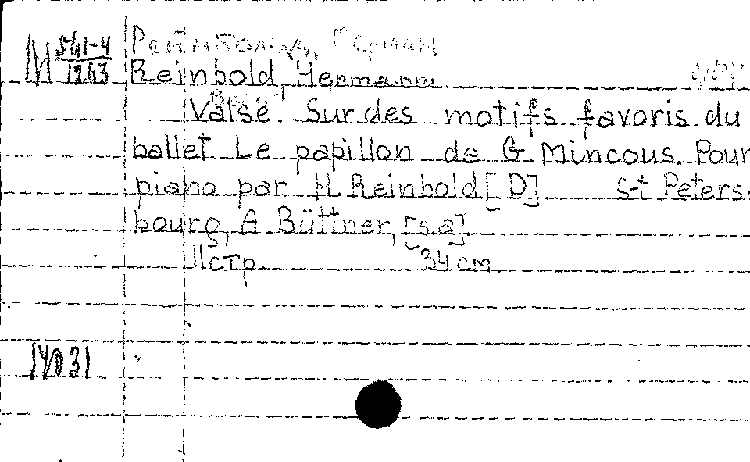 М 541-4
1263
Рейнбольд, Герман
Reinbold, Hermann
Valse. Sur des motifs favoris du
ballet Le papillon de G. Mincous. Pour
piano par H. Reinbold [D] S-t Peters-
bourg, A Büttner, [s.a].
11 стр 34 cm
14031